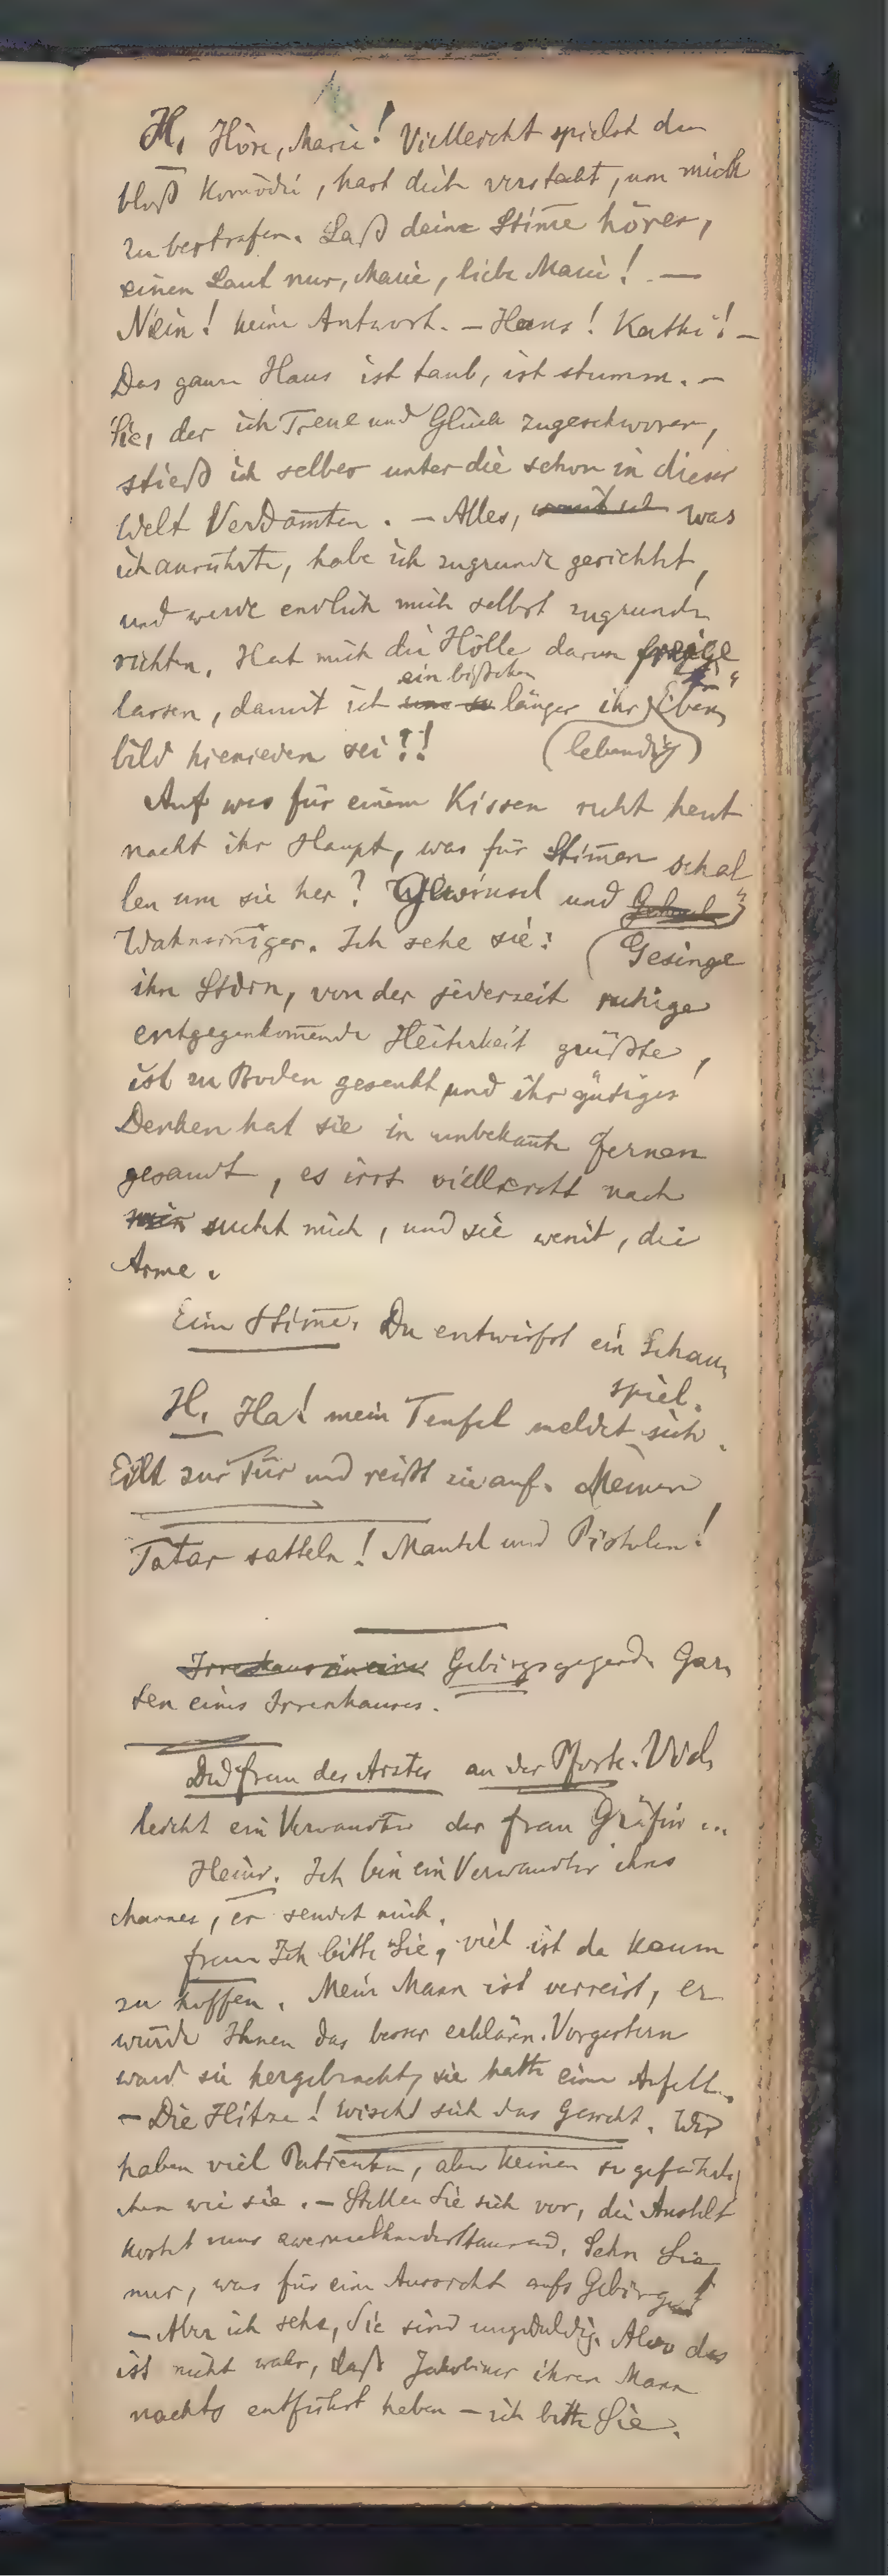 H. Höre, Marie! Vielleicht spielst du
bloß Komödie, hast dich versteckt, um mich
zu bestrafen. Laß deine Stim̅e hören,
einen Laut nur, Marie, liebe Marie! —
Nein! keine Antwort. – Hans! Kathi! –
Das ganze Haus ist taub, ist stumm. –
Sie, der ich Treue und Glück zugeschworen,
stieß ich selber unter die schon in dieser
Welt Verdam̅ten. – Alles, womit ich was
ich anrührte, habe ich zugrunde gerichtet,
und werde endlich mich selbst zugrunde
richten. Hat mich die Hölle darum freige
ein bißchen
lassen, damit ich um so länger ihr Eben,
bild hienieden sei?! (lebendig)
Auf was für einem Kissen ruht heut
nacht ihr Haupt, was für Stim̅en schal
len um sie her? Gewinsel und
Wahnsin̅iger. Ich sehe sie: (Gesinge
ihre Stirn, von der jederzeit ruhige
entgegenkom̅ende Heiterkeit grüßte,
ist zu Boden gesenkt und ihr gütiges
Denken hat sie in unbekan̅te Fernen
gesandt, es irrt vielleicht nach
mir sucht mich, und sie weint, die
Arme.
Eine Stim̅e. Du entwirfst ein Schau,
spiel.
H. Ha! mein Teufel meldet sich.
Eilt zur Tür und reißt sie auf. Meinen
Tatar satteln! Mantel und Pistolen!
Irrenhaus in einer Gebirgsgegend. Gar,
ten eines Irrenhauses.
Die Frau des Arztes an der Pforte. Viel,
leicht ein Verwandter der Frau Gräfin ...
Heinr. Ich bin ein Verwandter ihres
Mannes, er sendet mich.
Frau Ich bitte Sie, viel ist da kaum
zu hoffen. Mein Mann ist verreist, er
würde Ihnen das besser erklären. Vorgestern
ward sie hergebracht, sie hatte einen Anfall.
– Die Hitze! Wischt sich das Gesicht. Wir
haben viel Patienten, aber keinen so gefährli
chen wie sie. – Stellen Sie sich vor, die Anstalt
kostet uns zweimalhunderttausend. Sehn Sie
nur, was für eine Aussicht aufs Gebirge!
– Aber ich sehe, Sie sind ungeduldig. Also das
ist nicht wahr, daß Jakobiner ihren Mann
nachts entführt haben – ich bitte Sie.